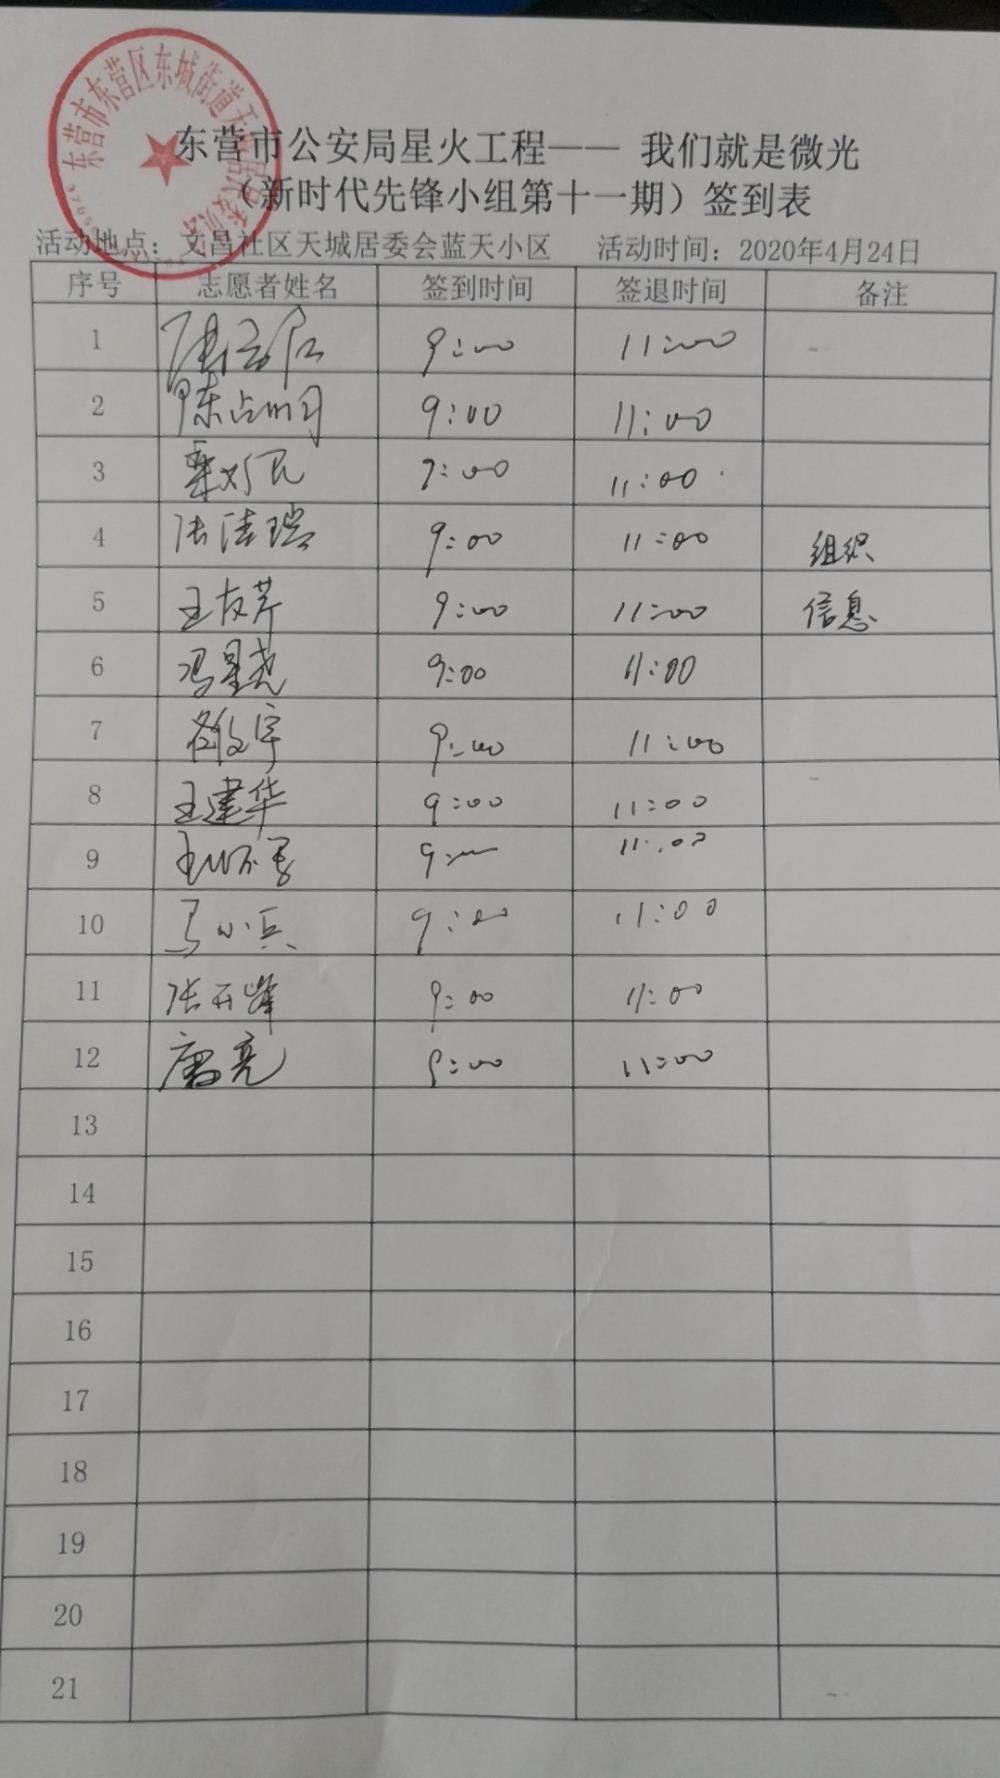 东营市东营区东城街道天
东营市公安局星火工程—— 我们就是微光
（新时代先锋小组第十一期）签到表
活动地点：文昌社区天城居委会蓝天小区 活动时间：2020年4月24日
序号 志愿者姓名 签到时间 签退时间 备注
1 9:00 11:00
2 陈占明 9:00 11:00
3 9:00 11:00
4 张洁瑞 9:00 11:00 组织
5 王友芹 9:00 11:00 信息
6 冯星尧 9:00 11:00
7 9:00 11:00
8 王建华 9:00 11:00
9 9:00 11:00
10 马小兵 9:00 11:00
11 张开峰 9:00 11:00
12 唐亮 9:00 11:00
13
14
15
16
17
18
19
20
21